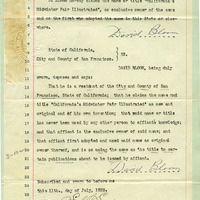 Midwinter Fair Illustrated", as exclusive owner of the name
and as the first who adopted the name in this State or else-
where.
David Bloom
State of California,
City and County of San Francisco. SS.
DAVID BLOOM, being duly
sworn, deposes and says:
That he is a resident of the City and County of San
Francisco, State of California; that he claims the name and
title "California's Midwinter Fair Illustrated" as new and
original and of his own invention; that said name or title
has never been used by any other person to affiants knowledge;
and that affiant is the exclusive owner of said name; and
that affiant first adopted and used said name as original
owner thereof, and is so using the same as the title to cer-
tain publications about to be issued by affiant.
David Bloom
Subscribed and sworn to before me
this 11th, day of July,